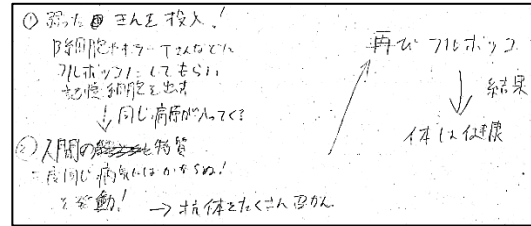 ① 弱った菌さんを投入!
B細胞やキラーTさんなどに
フルボッコにしてもらい
記憶細胞を出す
↓ 同じ病原が入ってく?
② 人間の物質
一度同じ病気にはかからぬ!
を発動! → 抗体をたくさん
再びフルボッコ
↓ 結果
体は健康